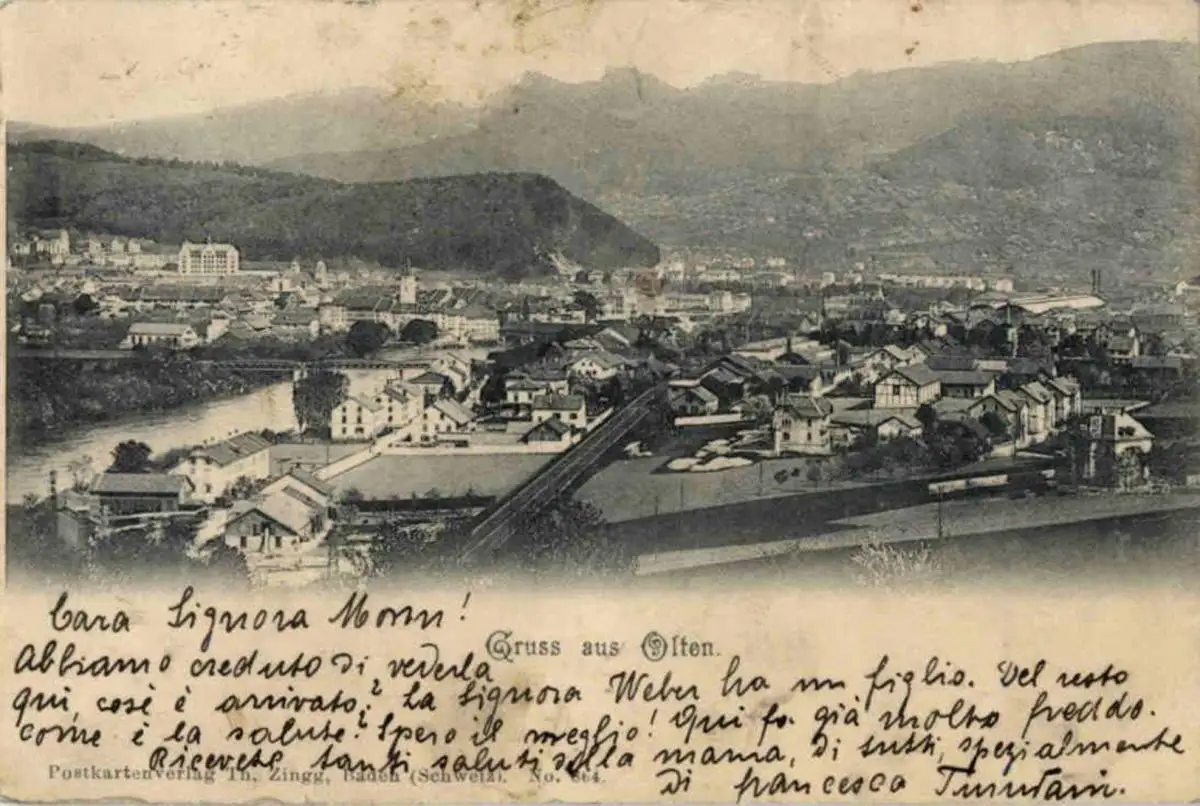 Cara Signora
Gruss aus Olten.
Abbiamo creduto di vederla
qui, cosè è arrivato? La Signora Weber ha un figlio. Del resto
come è la salute? Spero il meglio! Qui fa già molto freddo.
Ricevete tanti saluti della mama, di tutti, spezialmente
di francesca
Postkartenverlag Th. Zingg, Baden (Schweiz). No. 364.